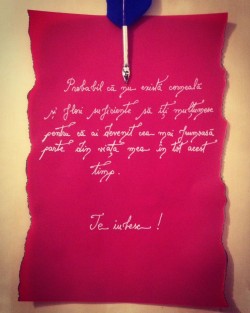 Probabil că nu există cerneală
și flori suficiente să îți mulțumesc
pentru că ai devenit cea mai frumoasă
parte din viața mea în tot acest
timp.
Te iubesc !